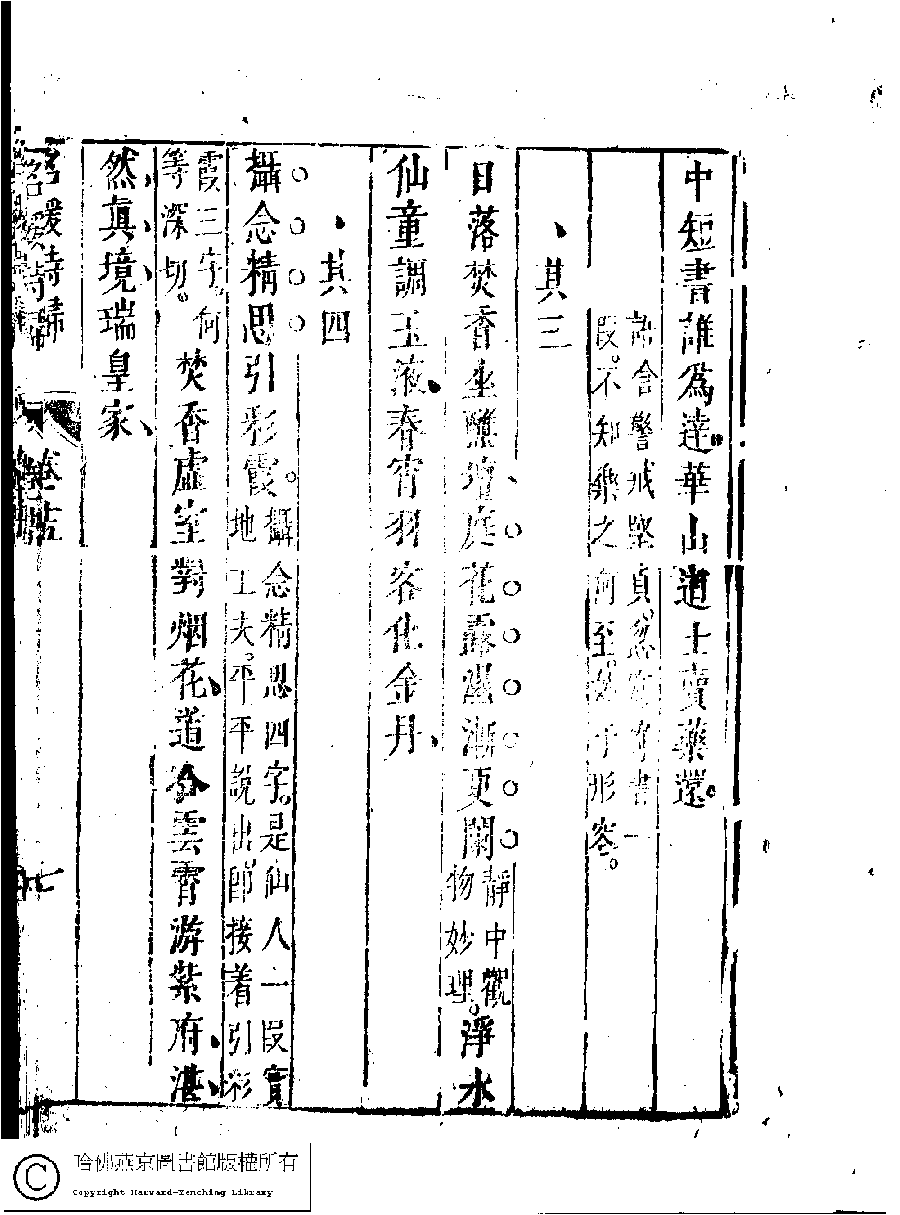 中短書誰為達華山道士賣藥還
語含警戒堅貞忽
段不知樂之何至形容
其三
日落焚香坐醮壇庭花露濕漸更闌靜中觀
物妙理淨水
仙童調玉液春宵羽客化金丹
其四
攝念精思引彩霞攝念精思四字是仙人一段實
地工夫平平說出卽接着引彩
霞三字何
等深切焚香虛室對烟花道合雲霄游紫府湛
然真境瑞皇家
名媛詩歸
卷
哈佛燕京圖書館版權所有
Copyright Harvard-Yenching Library